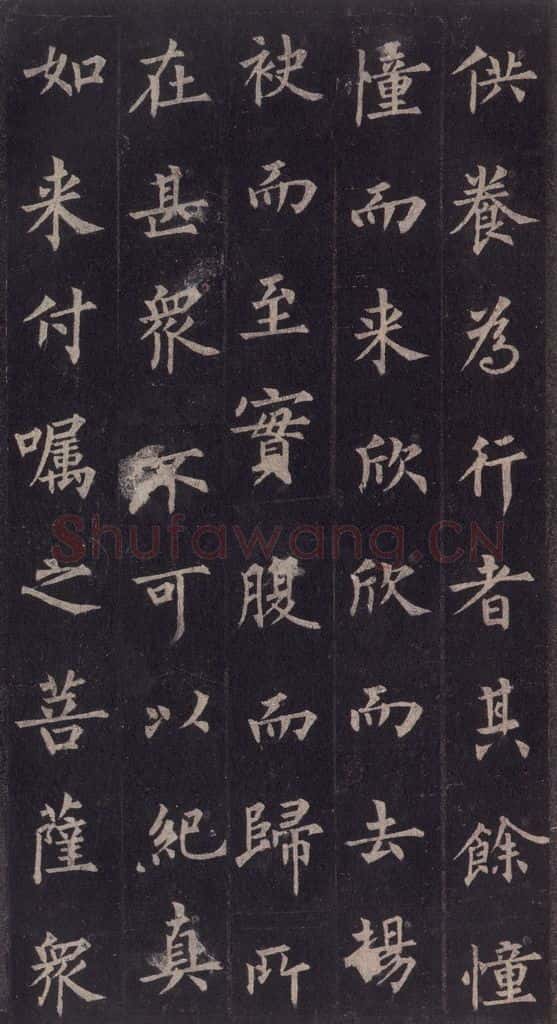 供養為行者其餘憧
憧而来欣欣而去揚
袂而至實腹而歸所
在甚眾不可以紀真
如来付嘱之菩薩眾
Shufawang.CN